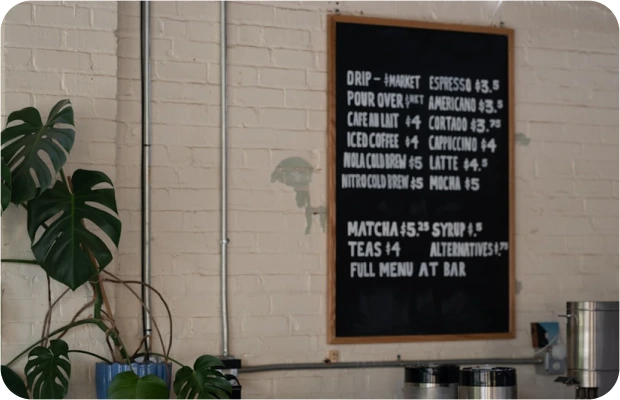 DRIP - $MARKET ESPRESSO $3.5
POUR OVER $MKT AMERICANO $3.5
CAFE AU LAIT $4 CORTADO $3.75
ICED COFFEE $4 CAPPUCCINO $4
NOLA COLD BREW $5 LATTE $4.5
NITRO COLD BREW $5 MOCHA $5
MATCHA $5.25 SYRUP $.5
TEAS $4 ALTERNATIVES $.75
FULL MENU AT BAR